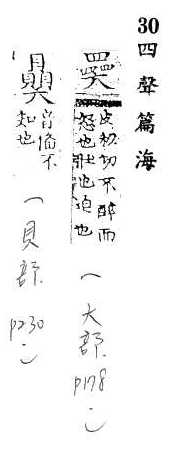 30 四聲篇海
皮祕切不醉而
怒也壯也迫也
（大部 p178）
音俻不
知也
（貝部 p230）